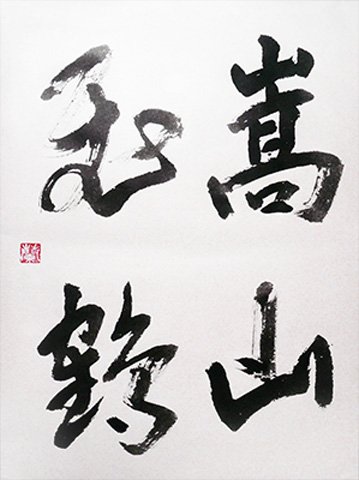 嵩山
飛鶴